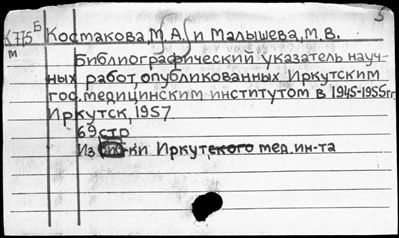 5
К775 Б Костакова, М.А. и Малышева, М.В.
м Библиографический указатель науч-
ных работ, опубликованных Иркутским
гос. медицинским институтом в 1945-1955гг.
Иркутск, 1957
69 стр
Из биб-ки Иркутского мед. ин-та